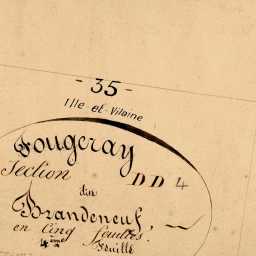 - 35 -
Ille-et-Vilaine
Fougeray
Section DD 4
du
Brandeneuf,
en Cinq feuilles.
4ème Feuille